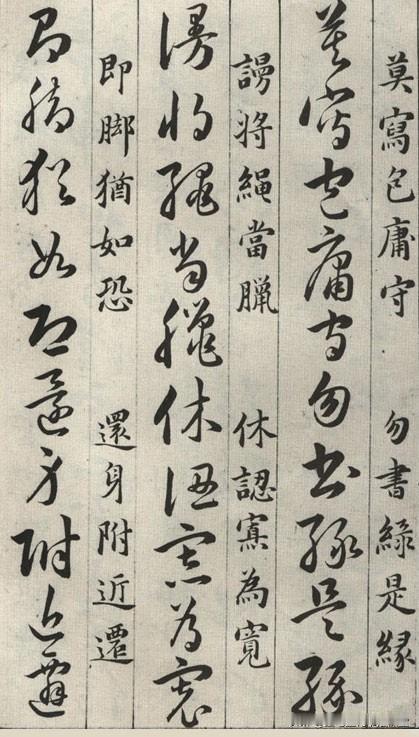 莫寫包庸守 勿書綠是緣
莫寫包庸守勿書綠是緣
謾將繩當臘 休認寡為寬
謾將繩當臘休認寡為寬
即脚猶如恐 還身附近遷
即脚猶如恐還身附近